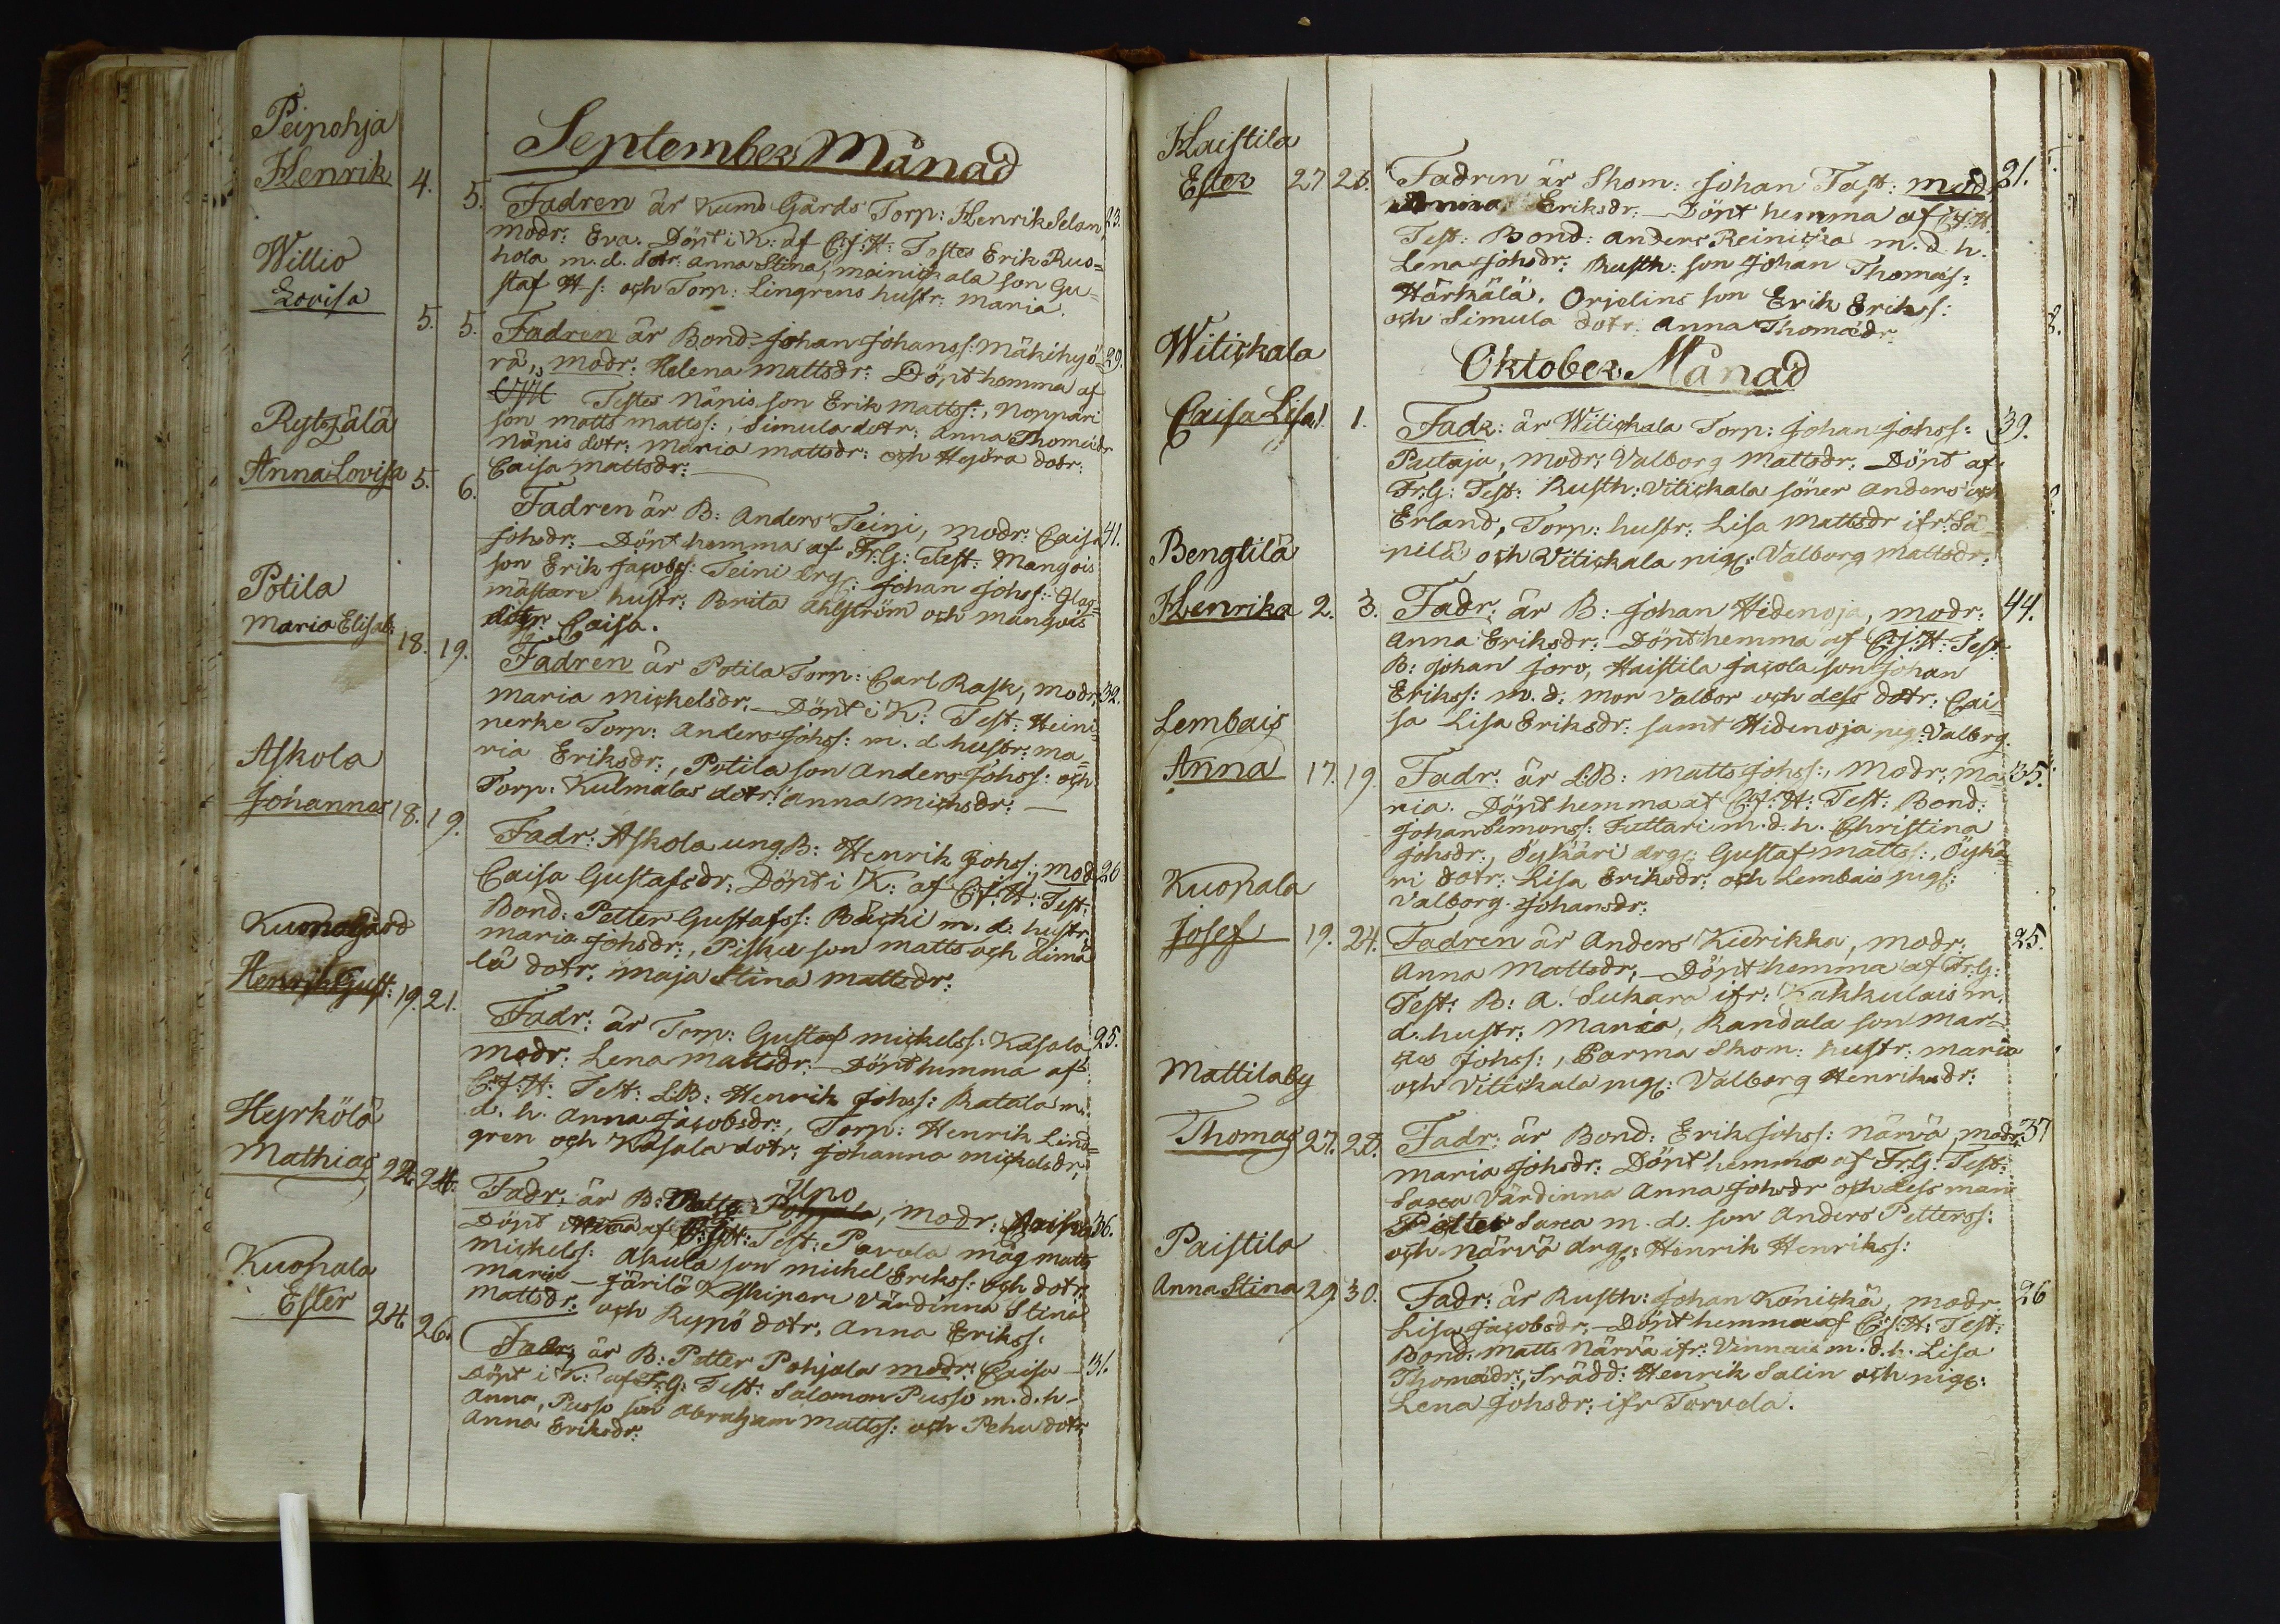 September Månad
Peipohja
Henrik 4. 5. Fadren är Kumo Gårds Torp: Henrik Selan, 23.
modr: Eva. Döpt i K: af C:J:H: Testes Erik Ruo=
hola m. d. dotr: Anna Stina, mainickala son Gu=
staf H-s: och Torp: Lingrens hustr: Maria.
Willio
Lovisa 5. 5. Fadren är Bond: Johan Johanss: Mäkihyö= 29.
rä, modr: Helena Mattsdr: Döpt hemma af
Testes Nänis son Erik Mattss:, Noppari
son Matts Mattss:, Simula dotr: Anna Thomædr
Nänis dotr: Maria Mattsdr: och Hyöra dotr:
Caisa Mattsdr:
Rytsälä
Anna Lovisa 5. 6. Fadren är B: Anders Teini, modr: Caisa 41.
Johsdr: Döpt hemma af Fr:G: Test: Mangois
son Erik Jacobss: Teini drg: Johan Johss: Glas=
mästare hustr: Brita Ahlström och Mangois
dotr: Caisa.
Potila
Maria Elisab: 18. 19. Fadren är Potila Torp: Carl Rask, modr: 32.
Maria Mickelsdr. Döpt i K: Test: Heini=
nerke Torp: Anders Johss: m. d. hustr: Ma=
ria Eriksdr:, Potila son Anders Johss: och
Torp: Kulmalas dotr: Anna Micksdr:
Askola
Johannes 18. 19. Fadr: Askola ung B: Henrik Johss:, mod 26
Caisa Gustafsdr: Döpt i K: af C:J:H: Test:
Bond: Petter Gustafss: Bäcki m. d. hustr
Maria Johsdr:, Piska son Matts och Äimä
lä dotr: Maja Stina Mattsdr:
Kumogård
Henrik Gust: 19. 21. Fadr: är Torp: Gustaf Mickelss: Kasala 25.
modr: Lena Mattsdr: Döpt hemma af
C:J:H: Test: L:B: Henrik Johss: Ratala m.
d. h. Anna Jacobsdr:, Torp: Henrik Lind=
gren och Kasala dotr: Johanna Mickelsdr:
Hyrkölä
Mathias 22. 24. Fadr: är B: Matts Upo, modr: Caisa 36.
Döpt hema af C:J:H: Test: Pavola måg Matts
Mickelss: Askula son Michel Erikss: och dotr
Maria Järilä Keskipare Värdinna Stina
Mattsdr: och Ryppö dotr: Anna Erikss:
Kuopala
Ester 24. 26. Fadr: är B: Petter Pohjala modr: Caisa 31.
Döpt i K: af Fr:G: Test: Salomon Pusso m. d. h.
Anna, Pusso son Abraham Mattss: och Pehu dotr
Anna Eriksdr:
Haistila
Ester 27 28. Fadren är Skom: Johan Tast: mod 21.
Anna Eriksdr: Döpt hemma af C:J:H.
Test: Bond: Anders Reinicka m. d. h.
Lena Johsdr: Rusth: son Johan Thomæs:
Härkälä, Orjelins son Erik Erikss:
och Simula dotr: Anna Thomædr:
Oktober Månad
Witickala
Caisa Lisa 1. 1. Fadr: är Witickala Torp: Johan Johss: 39.
Putaja, modr: Valborg Mattsdr: Döpt af
Fr:G: Test: Rusth: Vitickala söner Anders och
Erland, Torp: hustr: Lisa Mattsdr ifr: Sä
pilä och Vitickala pig: Valborg Mattsdr:
Bengtilä
Henrika 2. 3. Fadr: är B: Johan Hidenoja, modr: 44.
Anna Eriksdr: Döpt hemma af C:J:H: Test:
B: Johan Joro, Haistila Jacola son Johan
Erikss: m. d. mor Valbor och dess dotr: Cai
sa Lisa Eriksdr: samt Hidenoja pig: Valbrg.
Lembais
Anna 17. 19 Fadr: är L:B: Matts Johss:, modr: Ma 35.
ria. Döpt hemma at C:J:H: Test: Bond:
Johan Simonss: Tuttari m. d. h. Christina
Johsdr:, Öykäri drg: Gustaf Mattss:, Öykä
ri dotr: Lisa Eriksdr: och Lembais pig:
Valborg Johansdr:
Kuopala
Josef 19. 24. Fadren är Anders Kierikka, modr: 25.
Anna Mattsdr: Döpt hemma af Fr:G:
Test: B: A. Sukara ifr: Kakkulais m.
d. hustr: Maria, Randala son Mar=
cus Johss:, Parma Skom: hustr: Maria
och Vitickala pig: Valborg Henriksdr:
Mattilaby
Thomas 27. 28. Fadr: är Bond: Erik Johss: Närvä, modr: 37
Maria Johsdr: Döpt hemma af Fr:G: Test:
Saxa Värdinna Anna Johsdr och dess man
Petter Saxa m. d. son Anders Petterss:
och Närvä drg: Henrik Henrikss:
Paistila
Anna Stina 29 30. Fadr: är Rusth: Johan Könickä, modr 26
Lisa Jacobsdr: Döpt hemma af C:J:H: Test:
Bond: Matts Närvä ifr: Vinnais m. d. h. Lisa
Thomædr:, Srädd: Henrik Salin och pig:
Lena Johsdr: ifr Torvola.